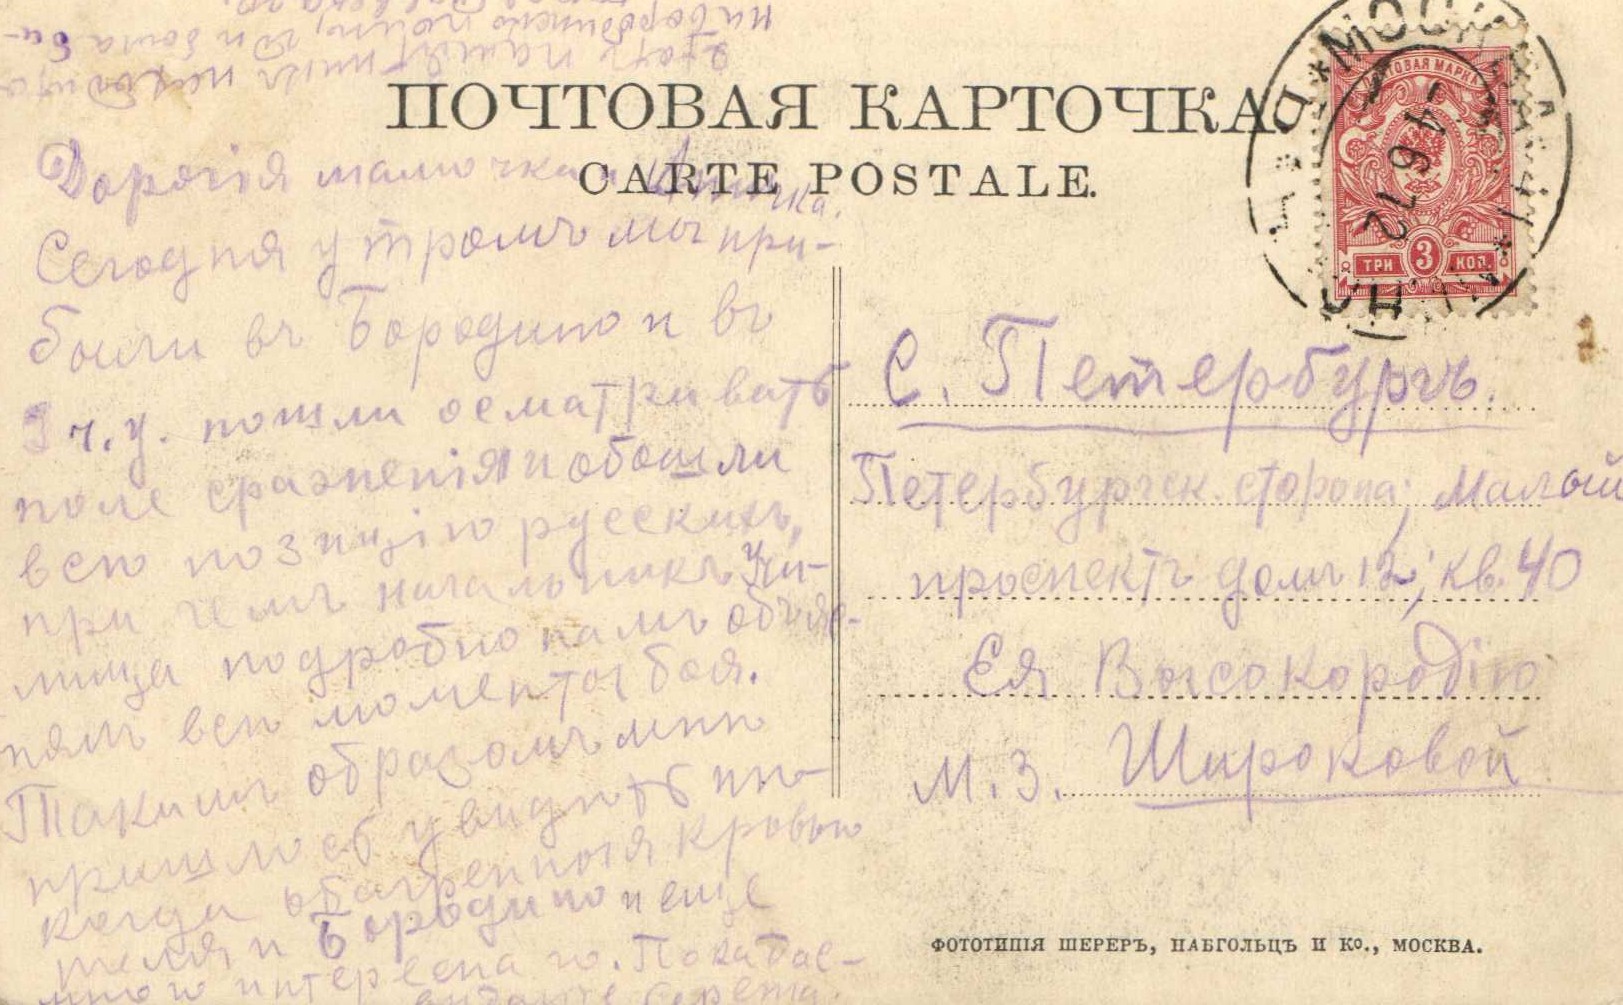 ПОЧТОВАЯ КАРТОЧКА
CARTE POSTALE.
Дорогія мамочка и
Сегодня утромъ мы при-
были въ Бородино и въ
ч. у. пошли осматривать
поле сраженія и обошли
всю позицію русскихъ,
при чемъ начальникъ Учи-
лища подробно намъ объяс-
нялъ все моменты боя.
Такимъ образомъ мнп
пришлось увидпть нп-
когда обагренныя кровью
поля Бородино и еще
много интереснаго. Пока
этотъ памятникъ находится
на Бородинском полп, гдп была ба-
МОСКВА
ПОЧТОВАЯ МАРКА
4 6 12
ТРИ 3 КОП.
С. Петербургъ.
Петербургск. сторона; Малый
проспектъ домъ 12; кв. 40
Ея Высокородію
М. З. Широковой
ФОТОТИПІЯ ШЕРЕРЪ, НАБГОЛЬЦЪ И Ко., МОСКВА.